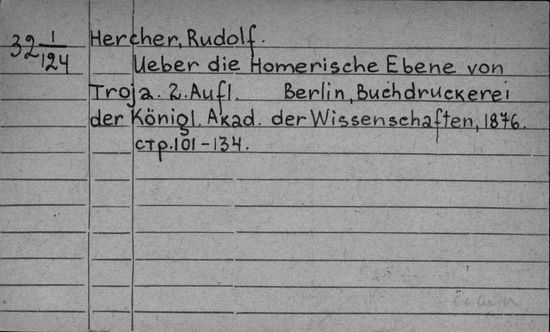 32 1/124
Hercher, Rudolf.
Ueber die Homerische Ebene von
Troja. 2. Aufl. Berlin, Buchdruckerei
der Königl. Akad. der Wissenschaften, 1876.
стр. 101-134.